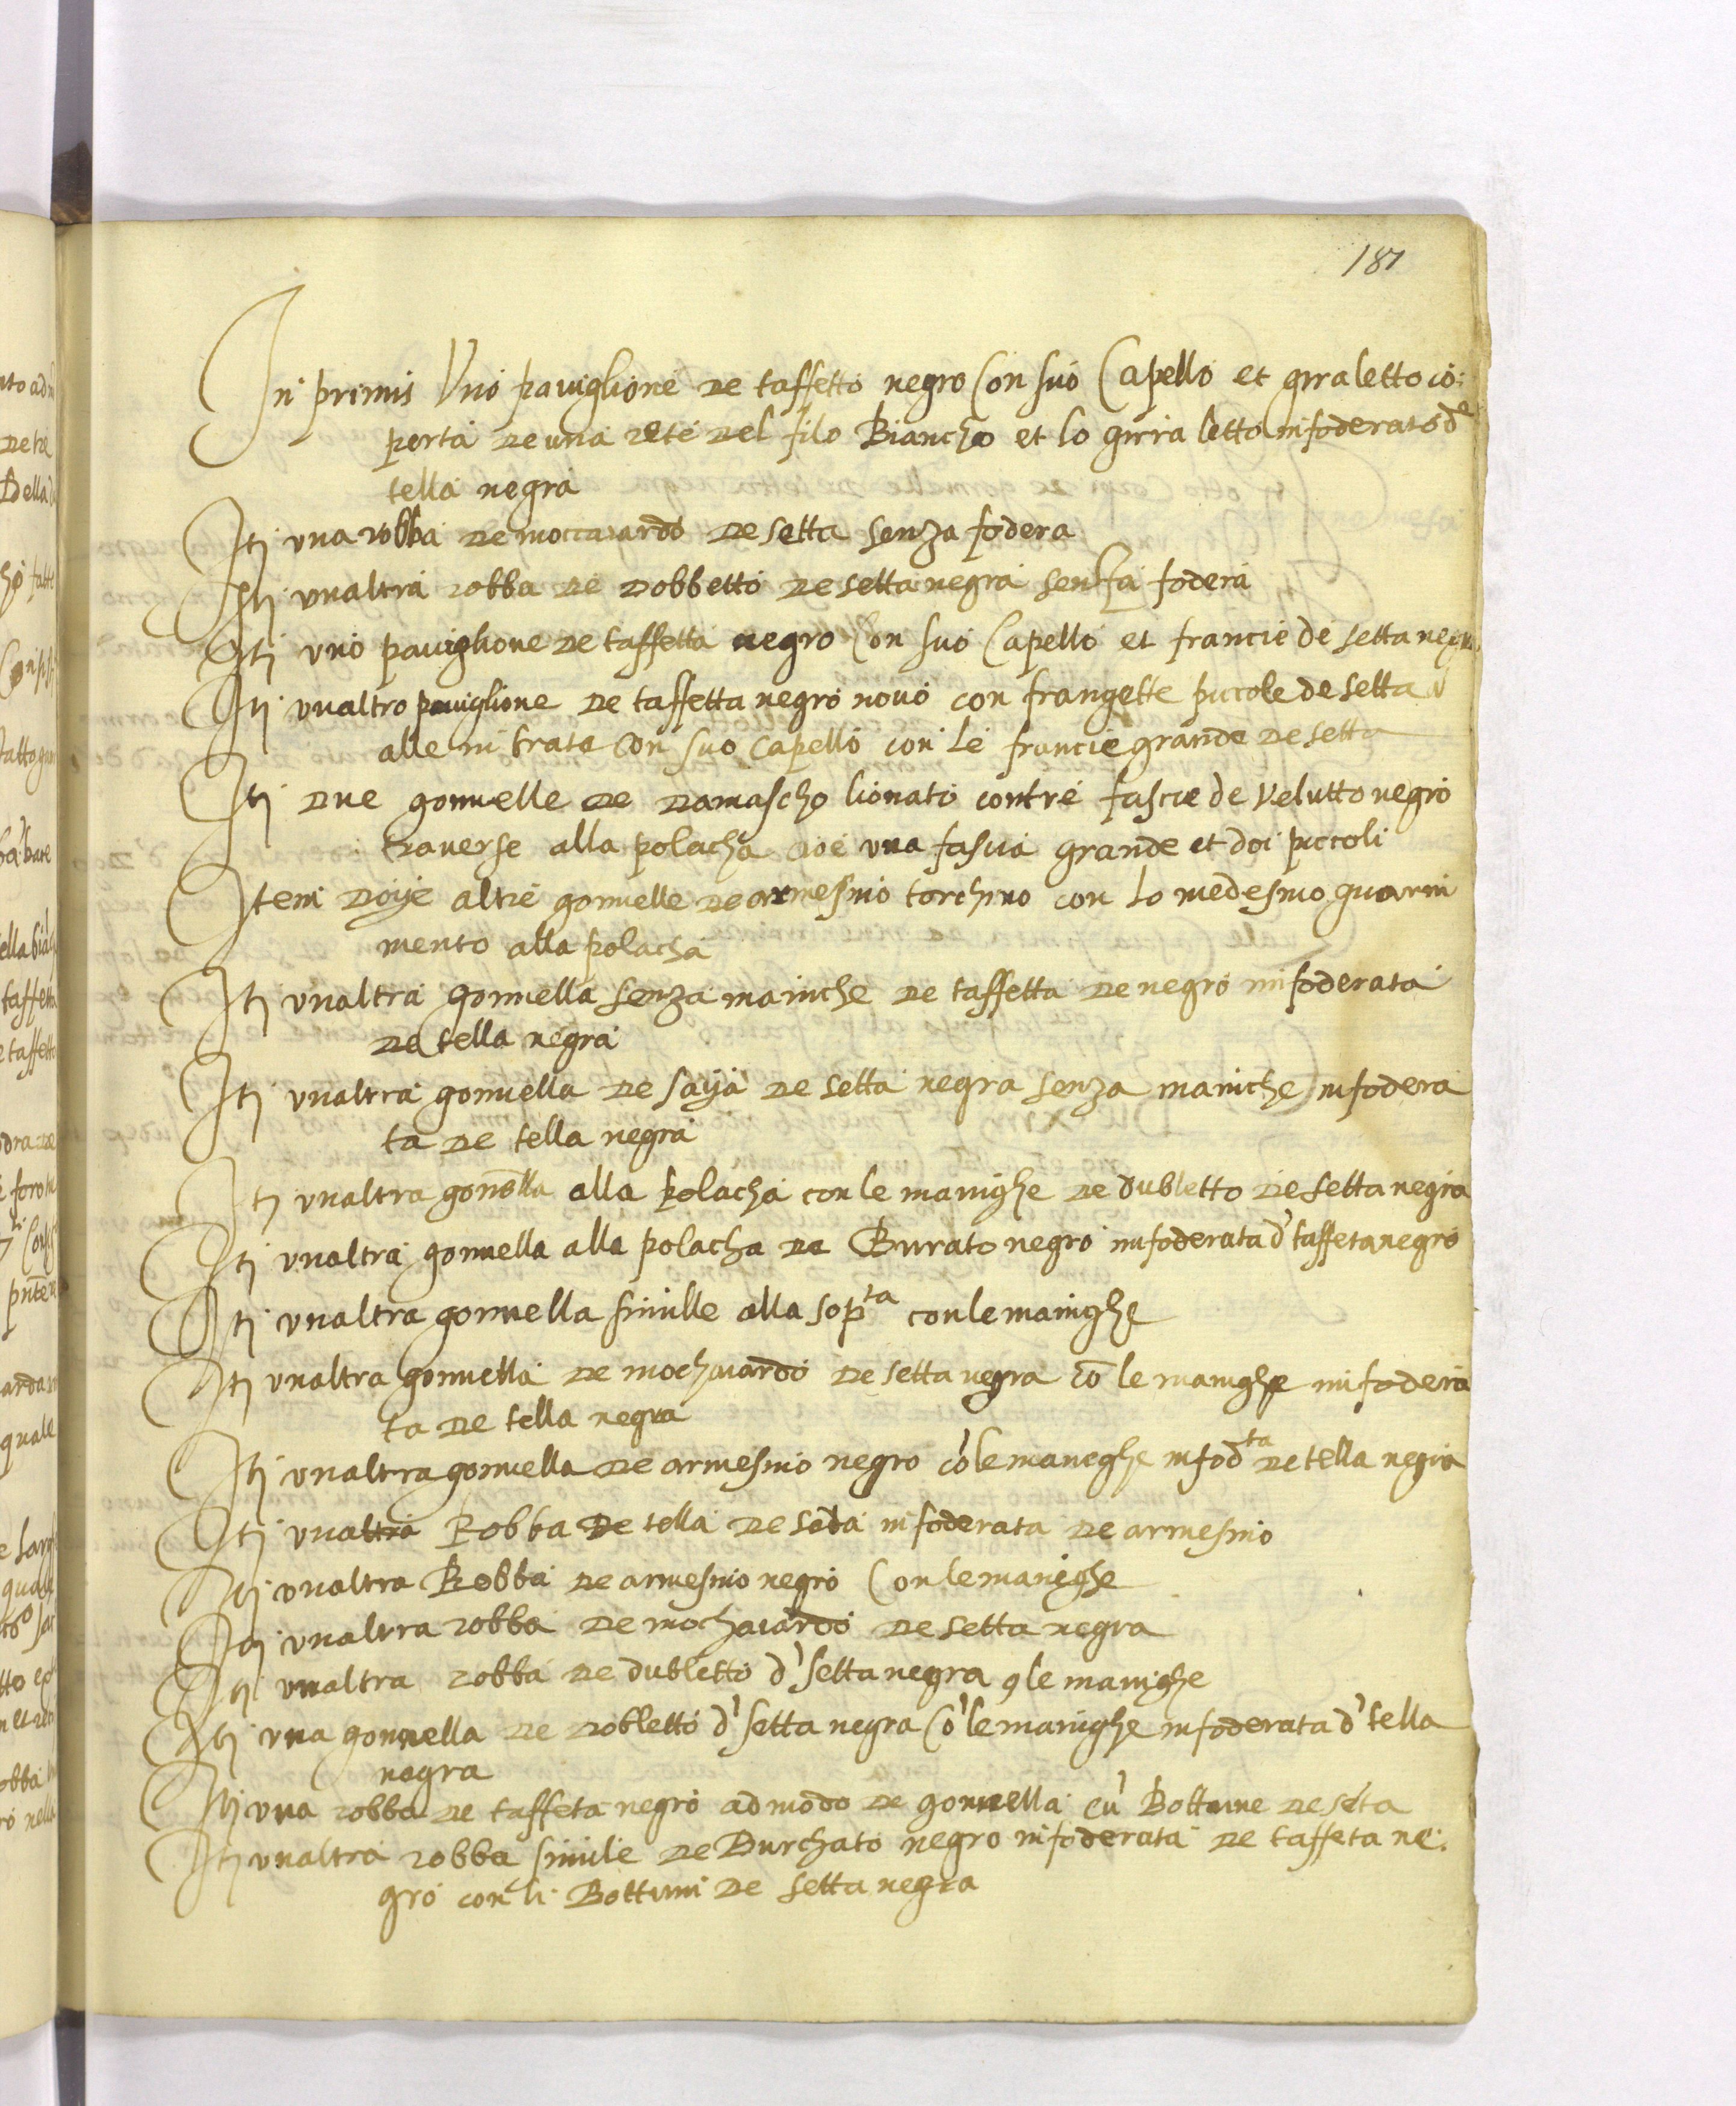 187
In primis Uno paviglione de taffetto negro Con suo Capello et giraletto co:
perta de una rete del filo Biancho et lo girra letto infoderato de
tella negra
Itj una robba de moccaiardo de setta senza fodera
Itj unaltra robba de dobbetto de setta negra senza fodera
Itj uno paviglione de taffetta negro Con suo Capello et francie de setta negra
Itj unaltro paviglione de taffetta negro novo con frangette piccole de setta
alle intrate Con suo Capello con le francie grande de setta
Itj due gonnelle de damascho lionato con tre fascie de velutto negro
traverse alla polacha cioe una fascia grande et doi piccoli
Item doije altre gonnelle de armesino torchino con lo medesmo guarni
mento alla polacha
Itj unaltra gonnella senza maniche de taffetta de negro infoderata
de tella negra
Itj unaltra gonnella de saija de setta negra senza maniche infodera
ta de tella negra
Itj unaltra gonella alla polacha con le manighe de dubletto de setta negra
Itj unaltra gonnella alla polacha de Burato negro infoderata d' taffeta negro
Itj unaltra gonnella simille alla sopta con le manighe
Itj unaltra gonnella de mochaiardo de setta negra cō le manighe infodera
ta de tella negra
Itj unaltra gonnella de armesino negro cō le maneghe infodta de tella negra
Itj unaltra Robba de tella de seda infoderata de armesino
Itj unaltra Robba de armesino negro Con le maneghe
Itj unaltra robba de mochaiardo de setta negra
Itj unaltra robba de dubletto d' setta negra 9 le manighe
Itj una gonnella de dobletto d' setta negra Cō le manighe infoderata d' tella
negra
Itj una robba de taffeta negro ad modo de gonnella cū Bottune de seta
Itj unaltra robba simile de Burchato negro infoderata de taffeta ne:
gro con li Bottuni de setta negra